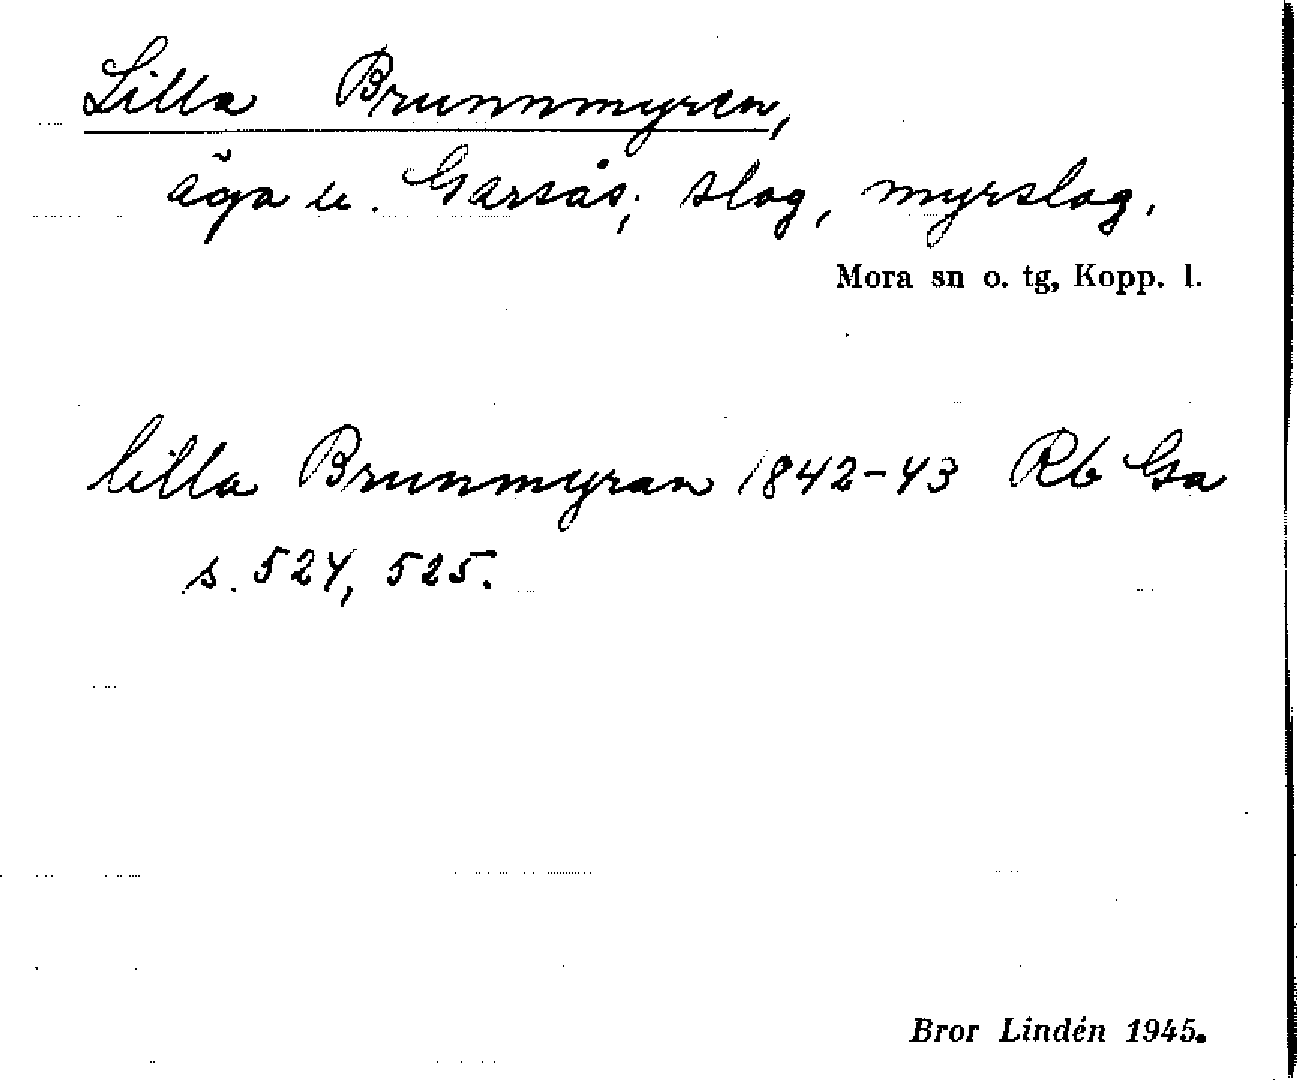 Lilla Brunnmyren,
äga u. Garsås; slog, myrslog.
Mora sn o. tg, Kopp. l.
lilla Brunmyran 1842-43 Rb Ga
s. 524, 525.
Bror Lindén 1945.